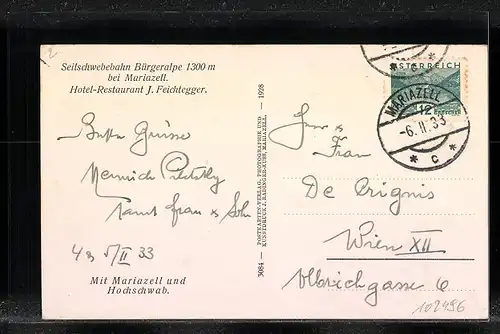 Seilschwebebahn Bürgeralpe 1300 m
bei Mariazell.
Hotel-Restaurant J. Feichtegger.
Grüsse
samt Frau & Sohn
5/II 33
Mit Mariazell und
Hochschwab.
3084 — POSTKARTEN-VERLAG, PHOTOGRAPHIE UND
KUNSTDRUCK J. KUSS, MARIAZELL. — 1928
ÖSTERREICH
12
MARIAZELL
-6.II.33
* C *
Herr &
Frau
De Crignis
Wien XII
Albrichgasse 6
102496